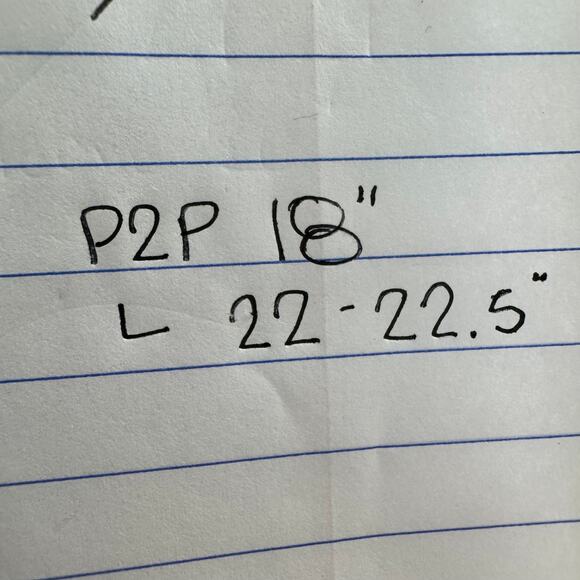 P2P 18"
L 22-22.5"